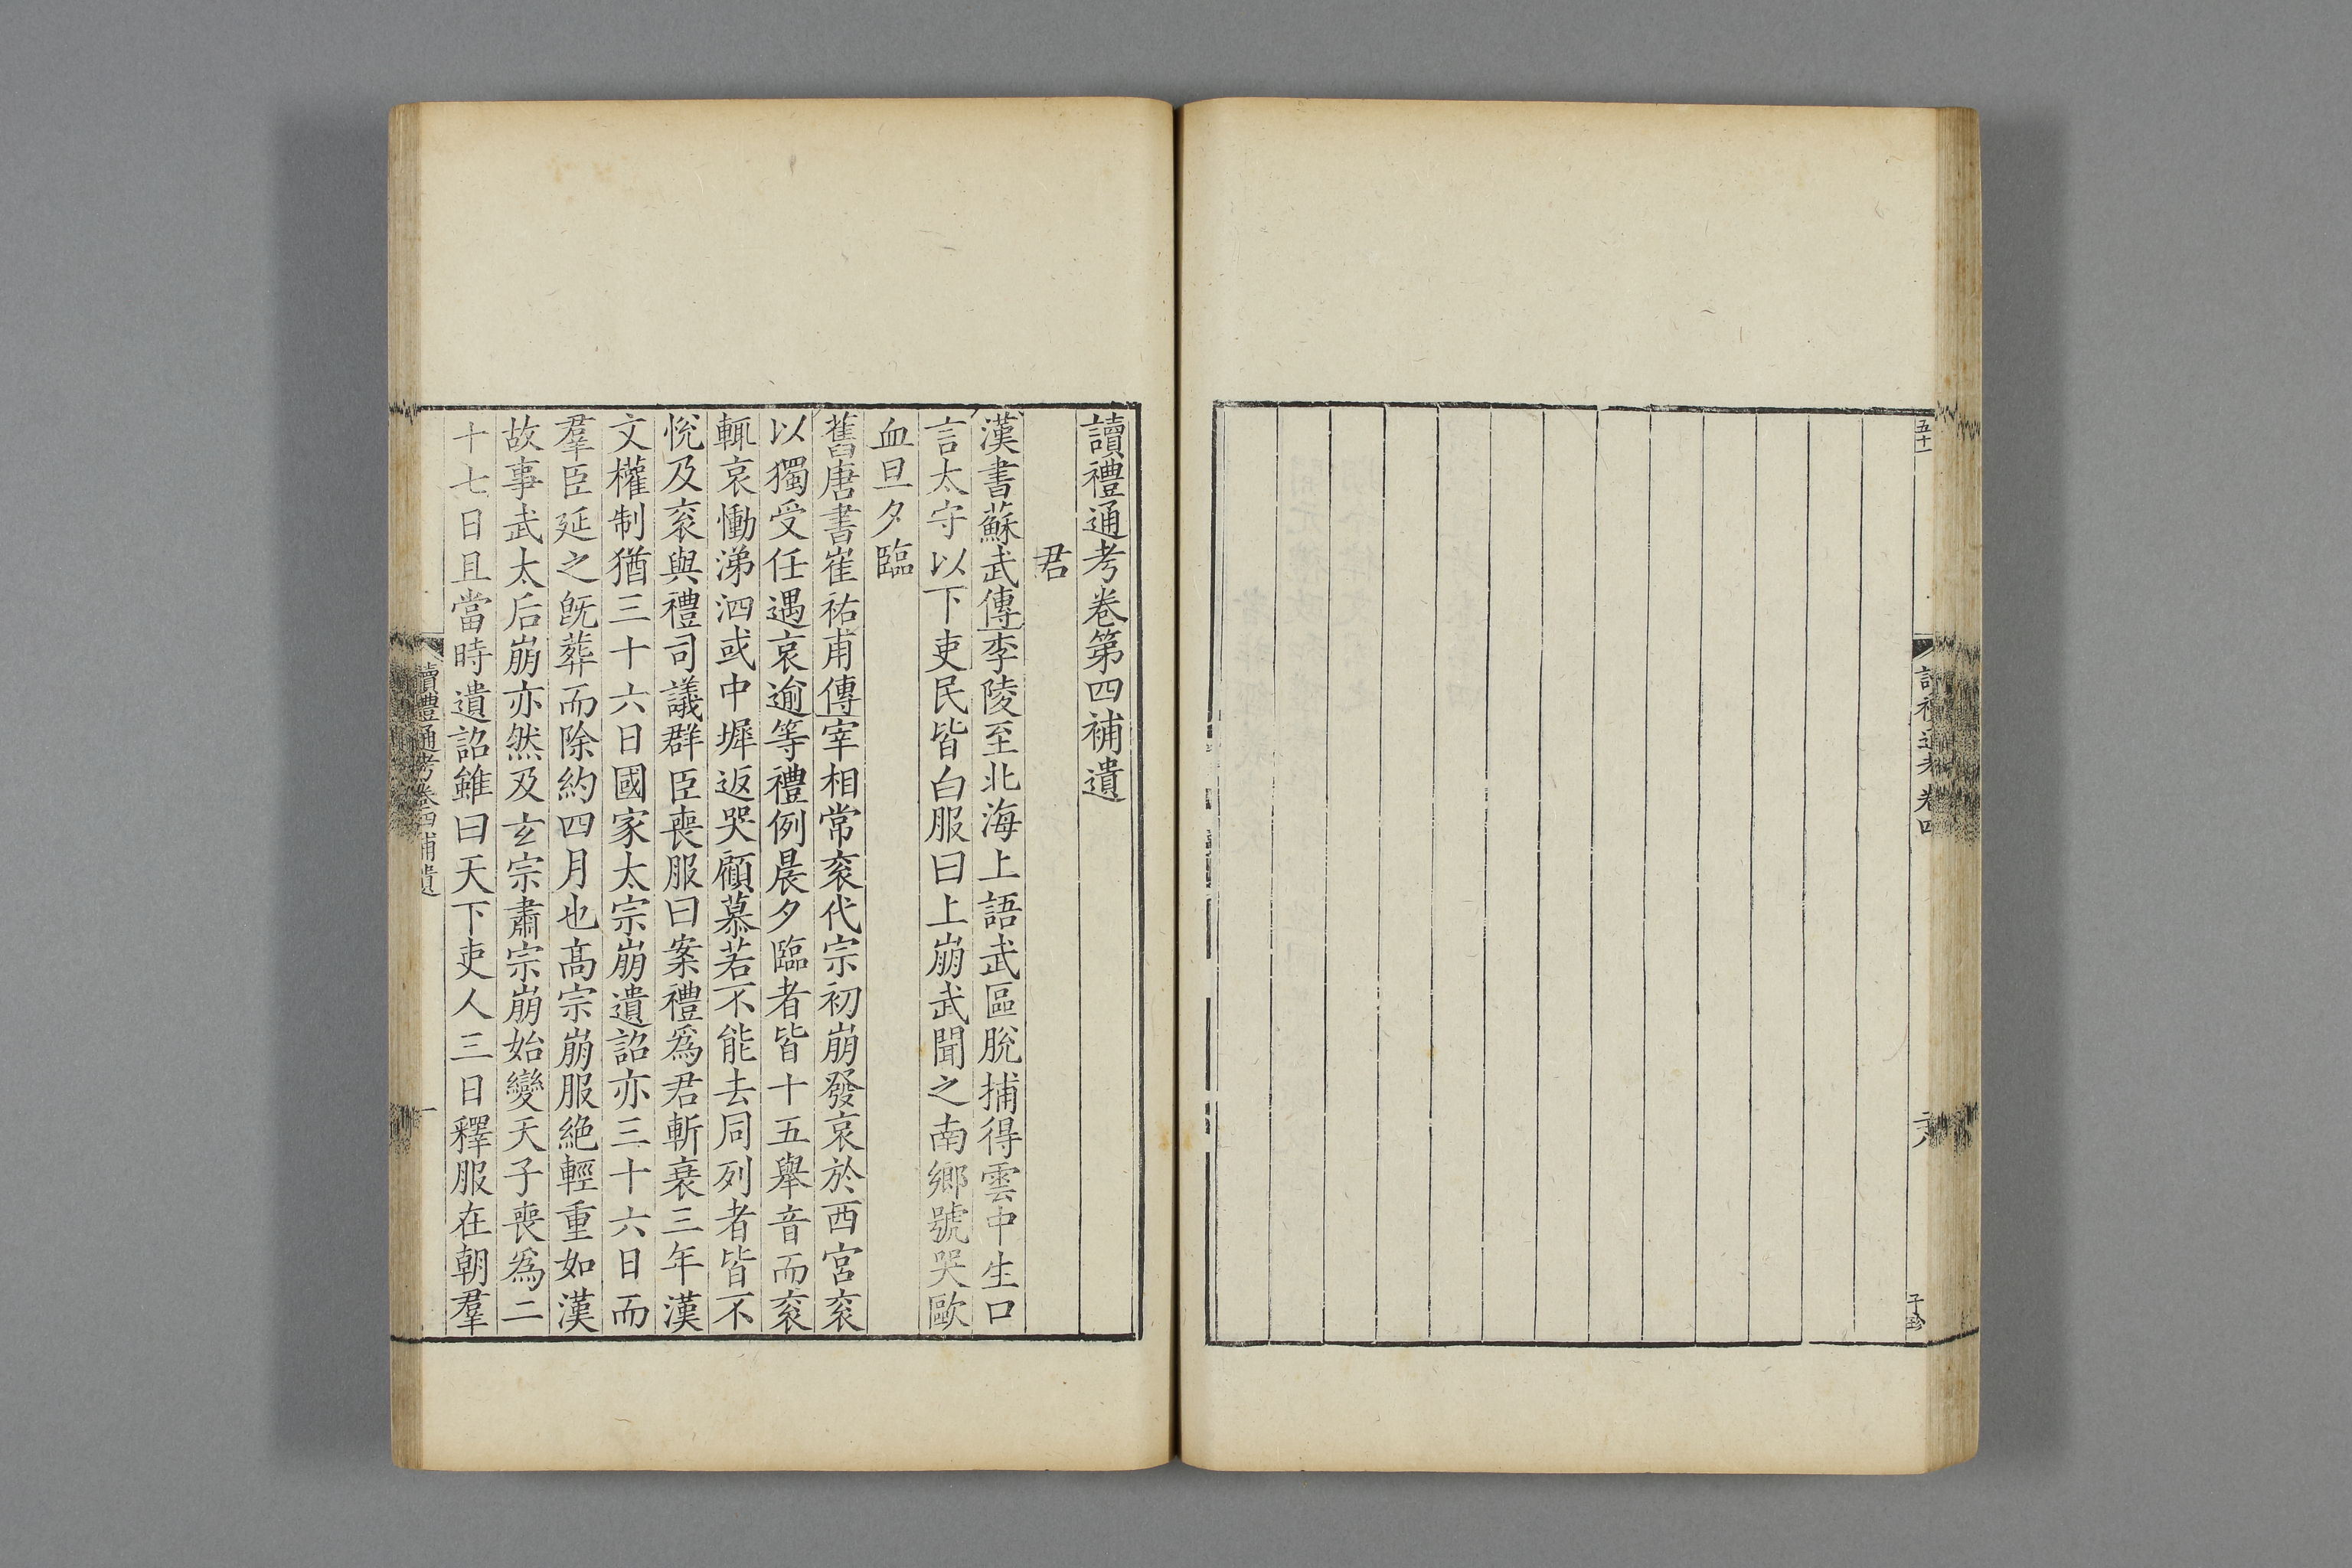 五十一
讀禮通考卷四
二八
子珍
讀禮通考卷第四補遺
君
漢書蘇武傳李陵至北海上語武區脫捕得雲中生口
言太守以下吏民皆白服曰上崩武聞之南鄉號哭歐
血旦夕臨
舊唐書崔祐甫傳宰相常衮代宗初崩發哀於西宮衮
以獨受任遇哀逾等禮例晨夕臨者皆十五舉音而衮
輒哀慟涕泗或中墀返哭顧慕若不能去同列者皆不
悅及衮與禮司議群臣喪服曰案禮爲君斬衰三年漢
文權制猶三十六日國家太宗崩遺詔亦三十六日而
羣臣延之旣葬而除約四月也高宗崩服絕輕重如漢
故事武太后崩亦然及玄宗肅宗崩始變天子喪爲二
十七日且當時遺詔雖曰天下吏人三日釋服在朝羣
讀禮通考卷四補遺
一